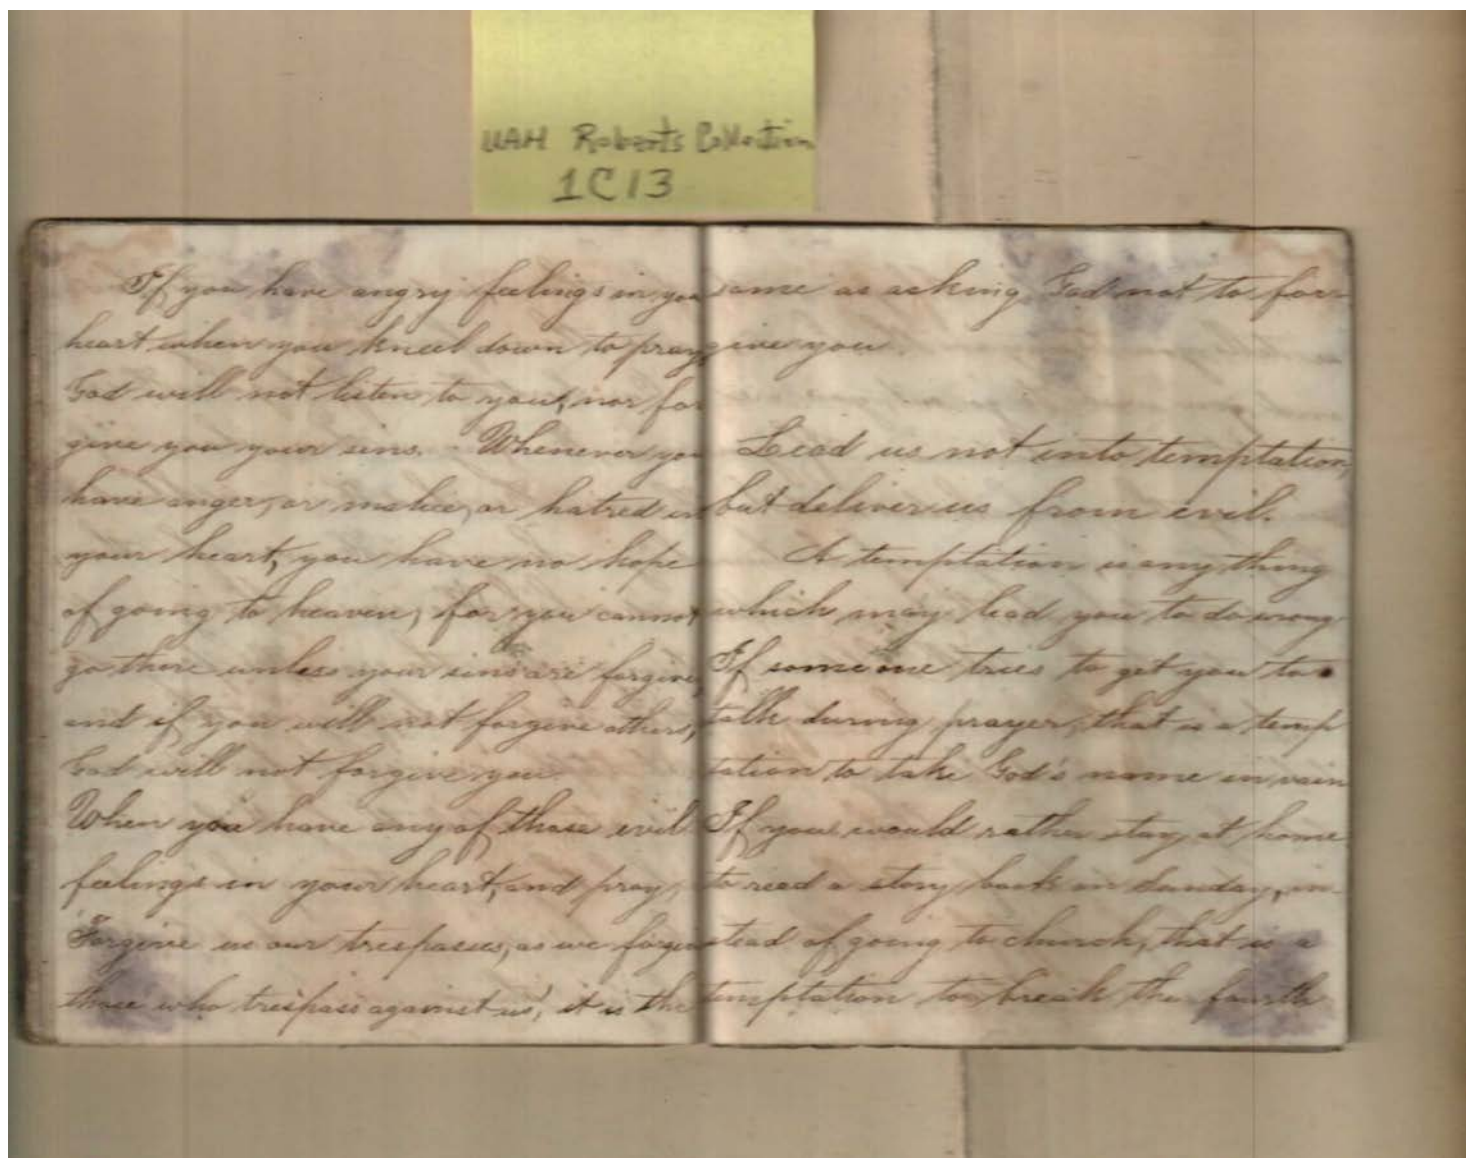 UAH Roberts Collection
1C13
If you have angry feelings in you
heart when you kneel down to pray
God will not listen to you, nor for
give you your sins. Whenever you
have anger, or malice, or hatred in
your heart, you have no hope
of going to heaven, for you cannot
go there unless your sins are forgiven,
and if you will not forgive others,
God will not forgive you.
When you have any of those evil
feelings in your heart, and pray,
'Forgive us our trespasses, as we forgive
those who trespass against us', it is the
same as asking God not to for-
give you.
Lead us not into temptation,
but deliver us from evil.
A temptation is any thing
which may lead you to do wrong.
If some one tries to get you to
talk during prayer, that is a temp
tation to take God's name in vain
If you would rather stay at home
to read a story book on Sunday, in-
stead of going to church, that is a
temptation to break the fourth